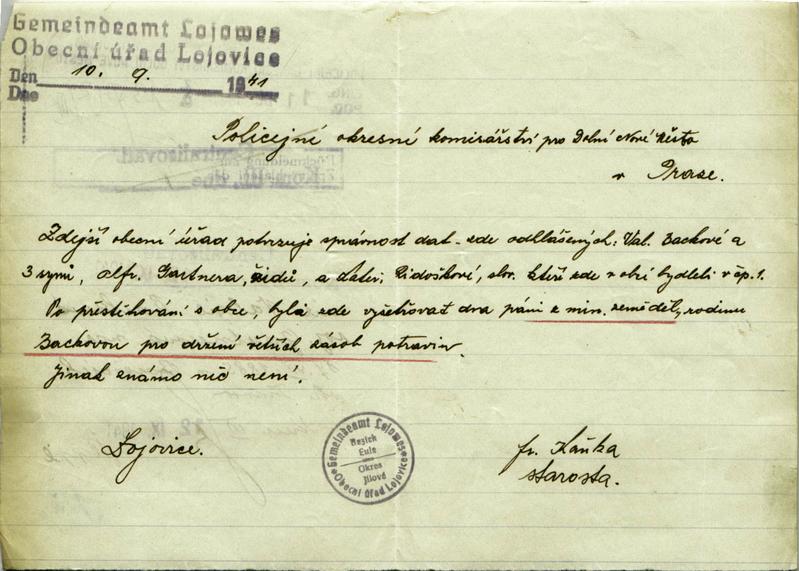 Gemeindeamt Lojowes
Obecní úřad Lojovice
Den
Dne 10. 9. 1941
Policejní okresní komisařství pro Dolní Nové Město
v Praze.
Zdejší obecní úřad potvrzuje správnost dat zde odhlášených: Val. Zackové a
3 synů, Alfr. Gartnera, židů, a Kater. Židoškové, slov. kteří zde v obci bydleli v čp. 1.
Po přestěhování s obce, byli zde vyšetřovat dva páni z min. zeměděl, rodinu
Zackovou pro držení větších zásob potravin.
Jinak známo nic není.
Lojovice.
Gemeindeamt Lojowes
Bezirk
Eule
Okres
Jílové
Obecní úřad Lojovice
fr. Kaňka
starosta.